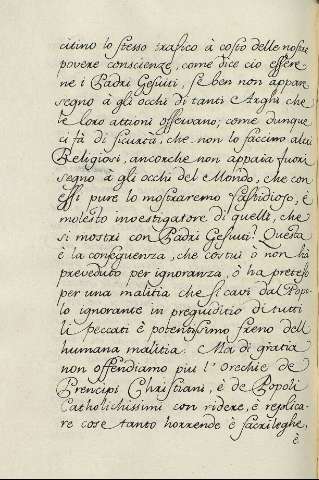 citino lo stesso trafico à costo delle nostre
povere conscienze, come dice cio essere
ne i Padri Gesuiti, se ben non appare
segno à gli occhi di tanti Arghi che
le loro attioni osservano; come dunque
ci fà di sicurtà, che non lo faccino altri
Religiosi, ancorche non appaia fuori
segno à gli occhi del Mondo, che con
essi pure lo mostraremo fastidioso, è
molesto investigatore di quelli, che
si mostri con Padri Gesuiti? Questa
è la conseguenza, che costui ò non hà
preveduto per ignoranza, ò ha preteso
per una malitia che si cavi dal Popo-
lo ignorante in pregiuditio di tutti
li peccati è potentissimo freno dell
humana malitia. Ma di gratia
non offendiamo piu l'Orechie de
Prencipi Christiani, è de Popoli
Catholichissimi con ridere, è replica-
re cose tanto horrende è sacrileghe,
è